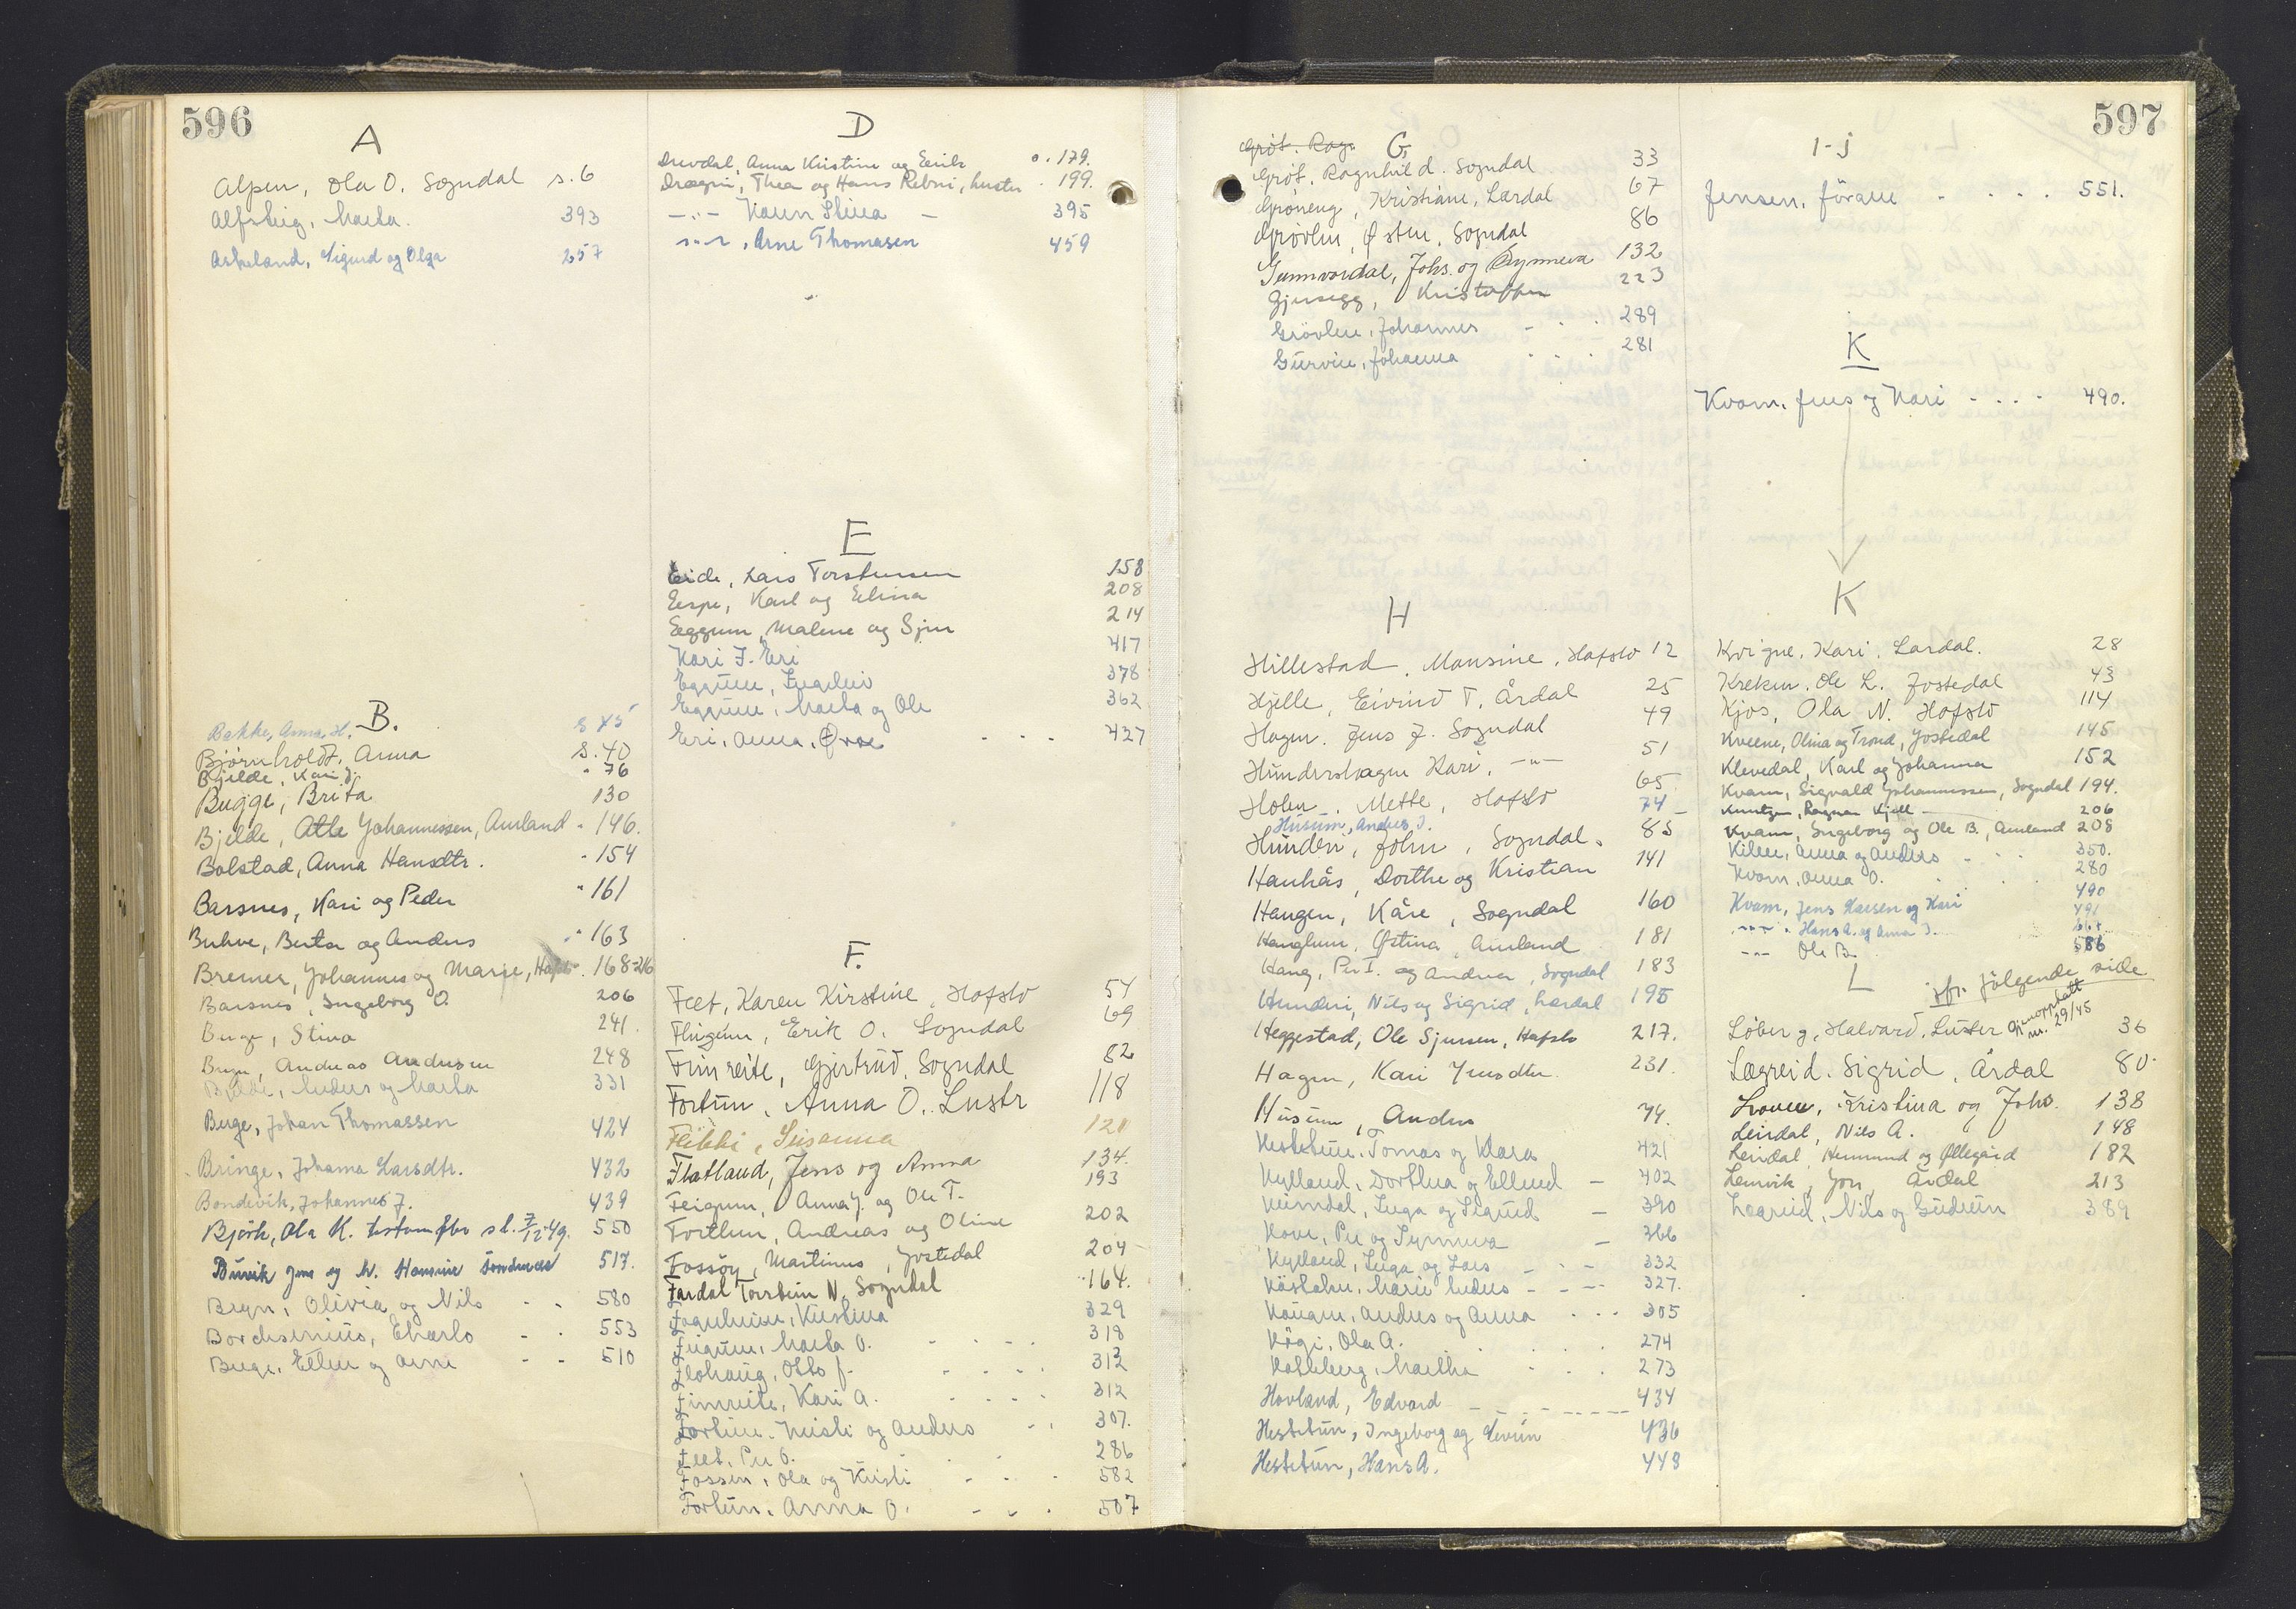 596
A
Alpen, Ola O. Sogndal s. 6
Alfsteig, Marta. 393
Askeland, Sigurd og Olga 257
B.
Bakke, Anna H. s 45
Bjørnholdt, Anna s. 40
Bjelde, Kari J. " 76
Bugge, Brita 130
Bjelde, Atle Johannessen, Aurland " 146.
Bolstad, Anna Hansdtr. " 154
Barsnes, Kari og Peder " 161
Buhve, Berta og Anders " 163
Bremer, Johannes og Marie, Hafslo . 168-216
Barsnes, Ingeborg O. 206
Buge, Stina 241.
Bugge, Andreas Andersen 248
Bjelde, Anders og Marta 331
Buge, Johan Thomassen 424
Bringe, Johanna Larsdtr. 432
Bondevik, Johannes J. 439
Bjørk, Ola K. testam fbr sl. 7/12-49. 550
Jens og 517.
Bryn, Olivia og Nils - - 580
Borchsenius, Charlo - . 553
Buge, Ellen og Arne - - 510
D
Drevdal, Anna Kristine og Eerik s. 179.
Drægni, Thea og Hans Rebni, Luster . 199.
-"- Karen Stina - 395
-"-, Arne Thomasen 459
E
Eide, Lars Torstensen 158
Eespe, Karl og Elina 208
Eeggum, Malene og Sjur 214
Kari J. Eri 417
Eggum, Ingeleiv 378
Eggum, Marta og Ole 362
Eri, Anna, - - - 427
F.
Feet, Karen Kirstine, Hafslo 54
Flugeim, Erik O. Sogndal 69
Fimreite, Gjertrud, Sogndal 82
Fortun, Anna O. Lustr 118
Flikki, Susanna 121
Flatland, Jens og Anna 134.
Feigum, Anna J. og Ole T. 193
Fortun, Andreas og Oline 202
Fossøy, Martinus, Jostedal 204
Fardal Torstein N. Sogndal " 164.
Fagerheim, Kristina 329
Feigum, Marta O. - - - - 318
Flohaug, Otto J. - - - - 313
Fimreite, Kari A. - - - - 312
Fortun, Kristi og Anders - . 307.
Feet, Per O. - - 286
Fossen, Ola og Kristi - - - 582
Fortun, Anna O. - - - 507
597
G
Grøt. Rag.
Grøt, Ragnhild. Sogndal 33
Grøneng, Kristiane, Lærdal 67
Grøvlen, Østen, Sogndal 86
Gunnvordal, Johs. og Synneva 132
Gjesegg, Kristoffer 223
Grøvlen, Johannes - - . 289
Gurvin, Johanna - - - 281
H
Hillestad, Mansine, Hafslo 12
Hjelle, Eivind T. Årdal 25
Hagen. Jens J. Sogndal 49
Hundershagen Kari, -"- 51
Holen, Mette, Hafslo 65
Husum, Andres J. 74
Hunderi, John, Sogndal. 85
Hauhås, Dorthe og Kristian 141
Haugen, Kåre, Sogndal 160
Hauglum, Østina, Aurland 181
Haug, Per I. og Andrea, Sogndal 183
Hunderi, Nils og Sigrid, Lærdal 195
Heggestad, Ole Sjursen, Hafslo 217.
Hagen, Kari Jensdter 231.
Husum, Anders 74.
Hestetun, Tomas og Klara 421
Hylland, Dorthea og Ellend - 402
Heimdal, Inga og Sigurd - 390
Hove, Per og Synneva - 366
Hylland, Inga og Lars - - - 332
Marie Anders - - - 327.
Haugen, Anders og Anna - - - 305
Høgi, Ola A. . . . . 274
Hatleberg, Martha - - . 273
Hovland, Edvard - - - - - - - 434
Hestetun, Ingeborg og Steinn 436
Hestetun, Hans A. 448
I-J
Jensen, Jørgen - - - - 551.
K
Kvam, Jens og Kari - - - - 490.
K
Kvigne, Kari, Lærdal. 28
Kreken, Ole L. Jostedal 43
Kjos, Ola N. Hafslo 114
Kveene, Olina og Trond, Jostedal 145
Klevedal, Karl og Johanna 152
Kvam, Sigvald Johannessen, Sogndal 194.
Knutzen, Ragnar Kjell 206
Kvam, Ingeborg og Ole B., Aurland 208
Kilen, Anna og Anders - - - 350.
Kvam, Anna O. . . . 280
Kvam, Jens Larsen og Kari 490
-"- Hans A. og Anna J. 491
-"- Ole B. 586
L jfr. følgende side
Løberg, Halvard, Luster Gjenopptatt nr. 29/45 36
Lægreid. Sigrid, Årdal 80
Loven, Kristina og Johs. 138
Leirdal, Nils A. 148
Leirdal, Hermund og Øllegård 182
Lemvik, Jon, Årdal 213
Lægreid, Nils og Gudrun 389